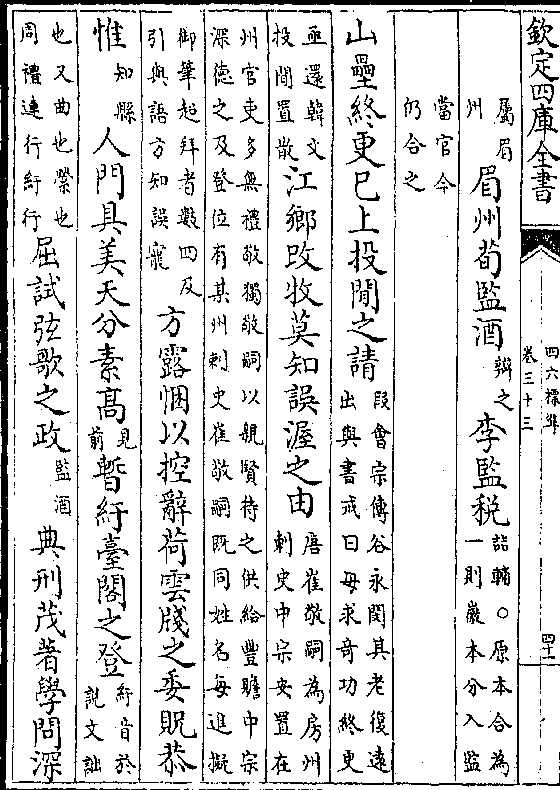 欽定四庫全書
四六標準
卷三十三
四十一
屬眉
州
眉州荀監酒
辨之
李監税
詰輔○原本合為
一則嚴本分入監
當官今
仍合之
山壘終更已上投閒之請
段會宗傳谷永閔其老復遠
出與書戒曰毋求竒功終更
亟還韓文
投閒置散
江鄉改牧莫知誤渥之由
唐崔敬嗣為房州
刺史中宗安置在
州官吏多無禮敬獨敬嗣以親賢待之供給豐贍中宗
深德之及登位有某州刺史崔敬嗣既同姓名每進擬
御筆超拜者數四及
引與語方知誤寵
方露悃以控辭荷雲牋之委貺恭
惟
知縣
人門具美天分素高
見
前
暫紆臺閣之登
紆音於
説文詘
也又曲也縈也
周禮連行紆行
屈試弦歌之政
監酒
典刑茂著學問深